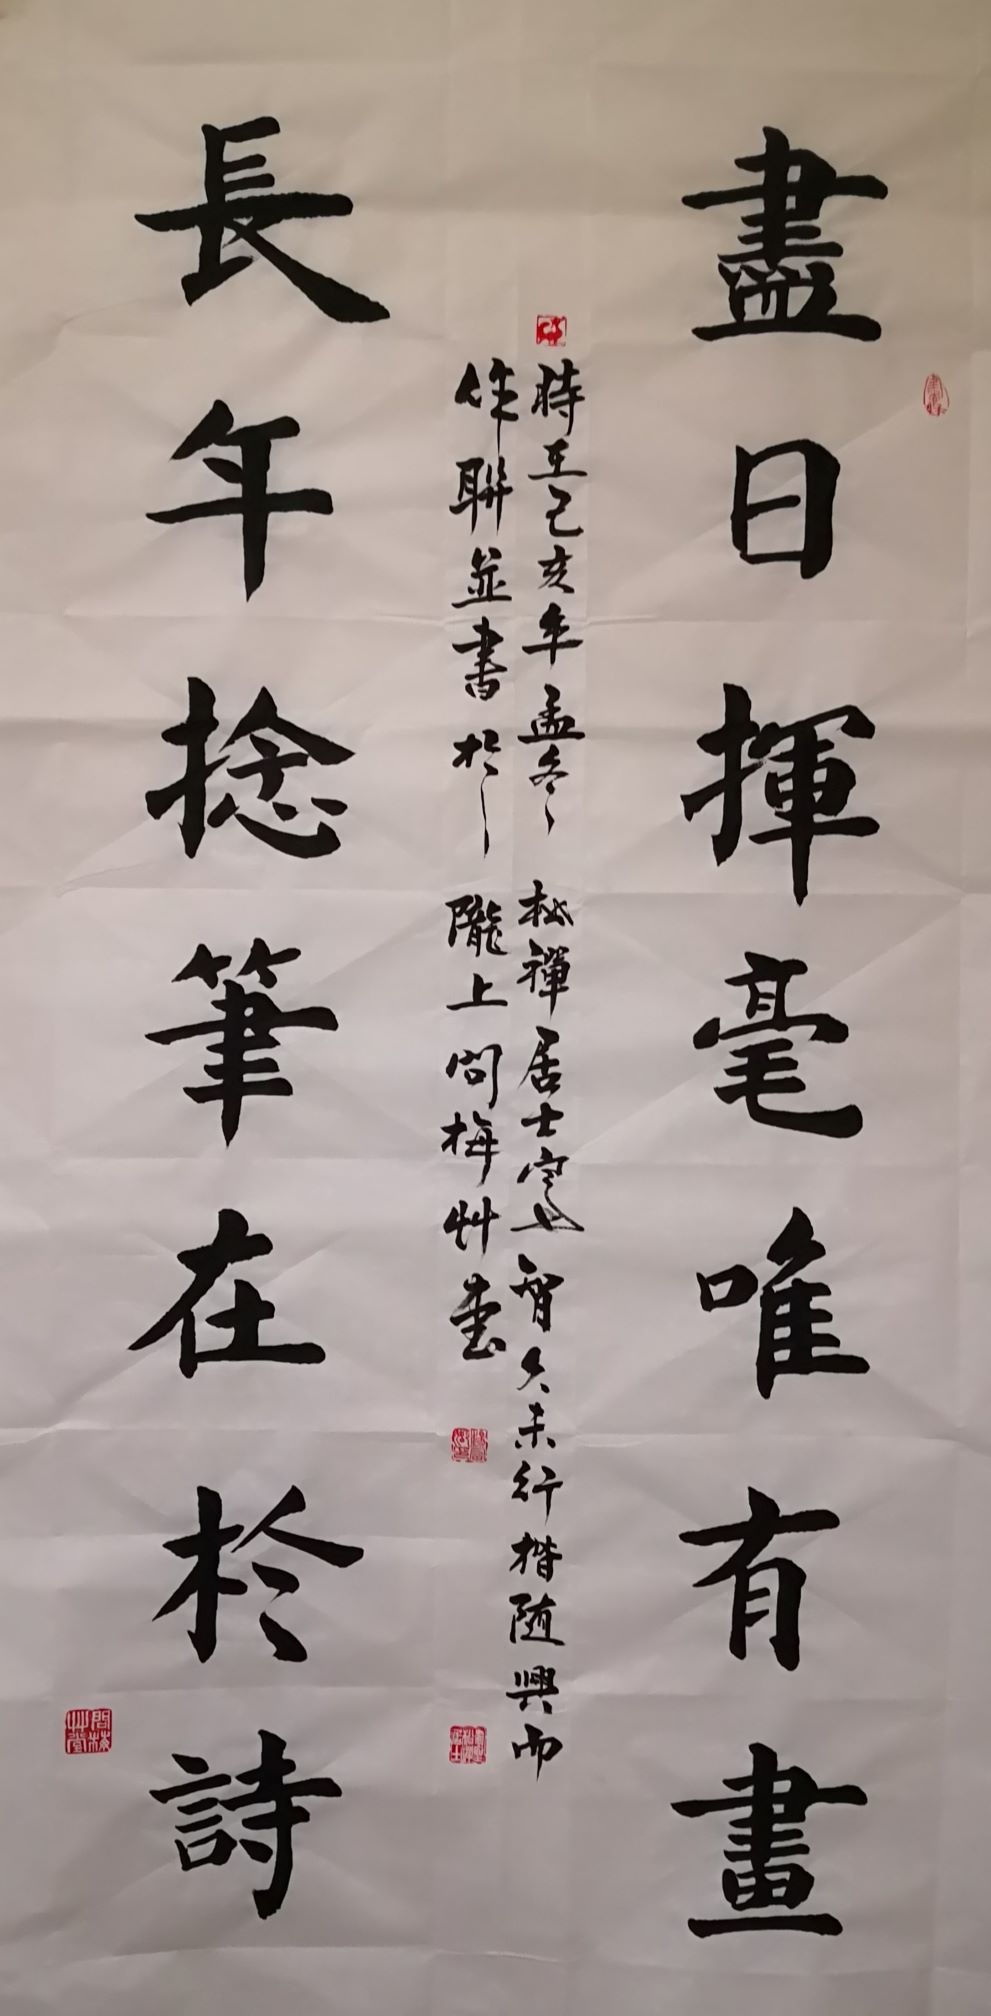 盡日揮毫唯有畫
時在己亥年孟冬 松禪居士寧智久未行楷随興而
作聯並書於 隴上問梅艸堂
長年捻筆在於詩
問梅艸堂